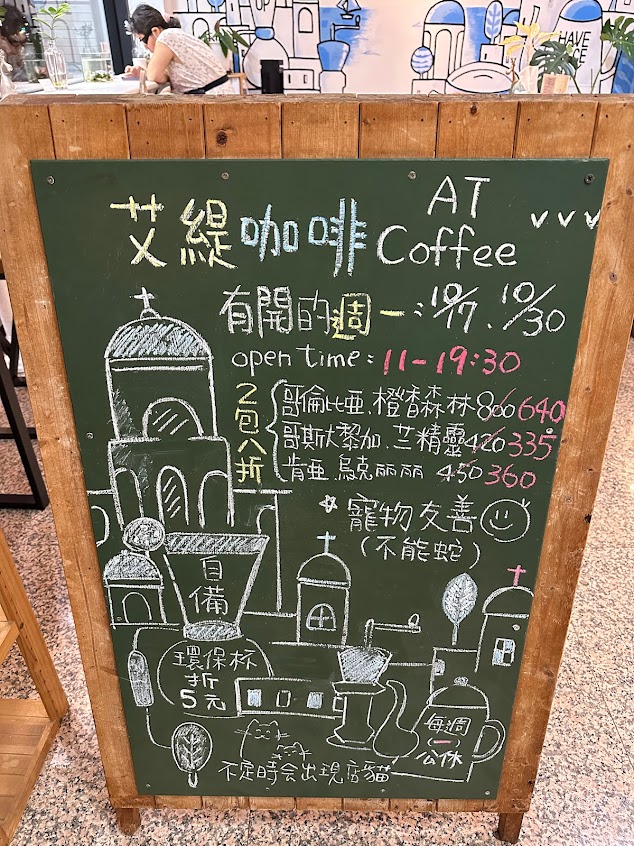 艾緹咖啡 AT Coffee
有開的週一：10/7、10/30
open time：11-19:30
2包八折
哥倫比亞.橙香森林 800 640
哥斯大黎加.芒精靈 420 335
肯亞.烏克丽丽 450 360
寵物友善
(不能蛇)
自備
環保杯
折
5元
每週
(一)
公休
不定時会出現店貓
HAVE